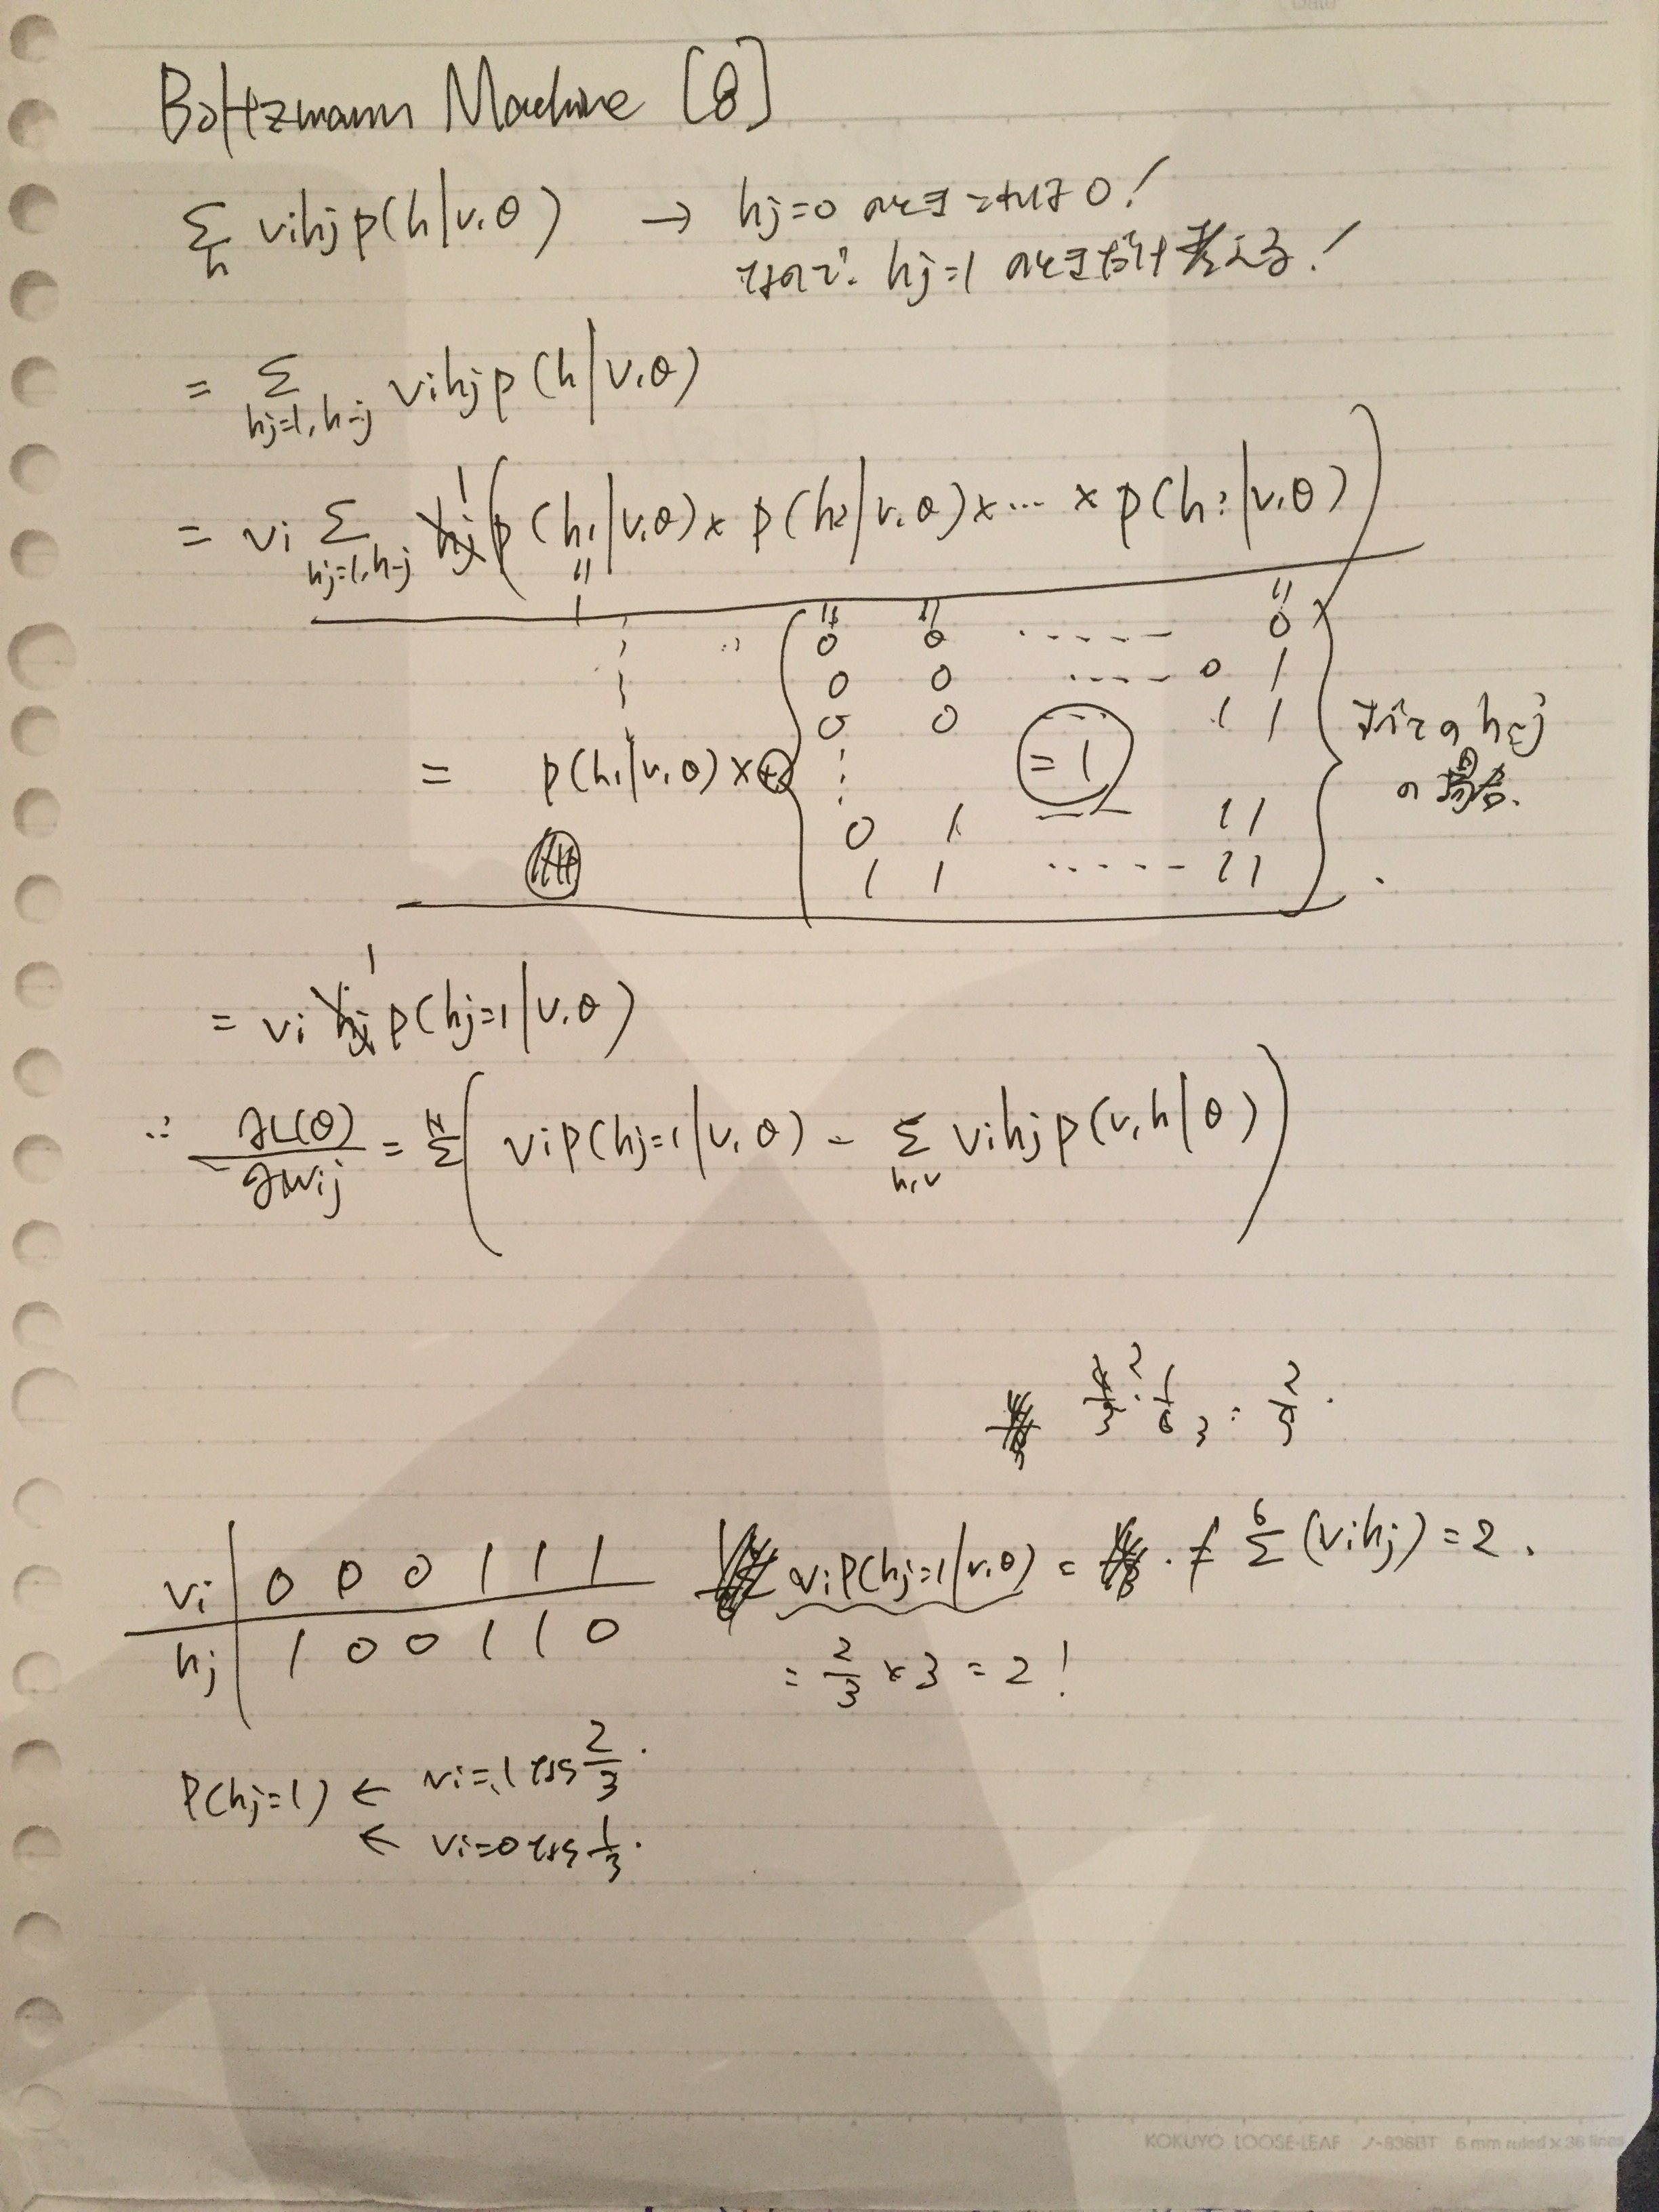 Boltzmann Machine [8]
Σ_h vihj p(h|v,θ) → hj=0 のときこれは0!
なので、hj=1 のときだけ考える!
= Σ_{hj=1, h-j} vihj p(h|v,θ)
1
= vi Σ_{hj=1, h-j} hj (p(h1|v,θ) × p(h2|v,θ) × … × p(h:|v,θ))
" " " "
1 0 0 ----- 0
0 0 ---- 0 1
0 0 --- 1 1
すべての h-j
= p(h1|v,θ) × ⊕ : = 1
の場合.
0 1 — 1 1
1 1 ------ 1 1
1
= vi hj p(hj=1|v,θ)
∴ ∂L(θ)/∂wij = Σ^N ( vi p(hj=1|v,θ) - Σ_{h,v} vihj p(v,h|θ) )
2/3 · 1/6 3 = 2/9 .
vi | 0 0 0 1 1 1
vi P(hj=1|v,θ) = · ≠ Σ^6 (vihj) = 2 .
hj | 1 0 0 1 1 0
= 2/3 × 3 = 2 !
P(hj=1) ← vi=1なら 2/3 .
← vi=0なら 1/3 .
KOKUYO LOOSE-LEAF ノ-836BT 6 mm ruled × 36 lines